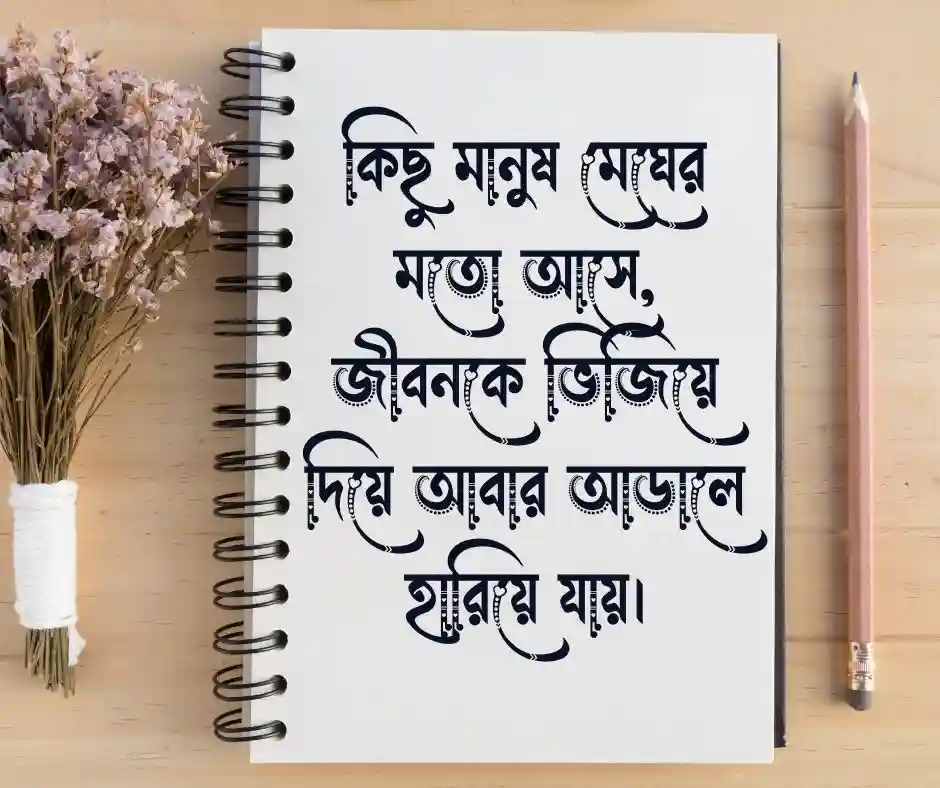 কিছু মানুষ মেঘের
মতো আসে,
জীবনকে ভিজিয়ে
দিয়ে আবার আডালে
হারিয়ে যায়।